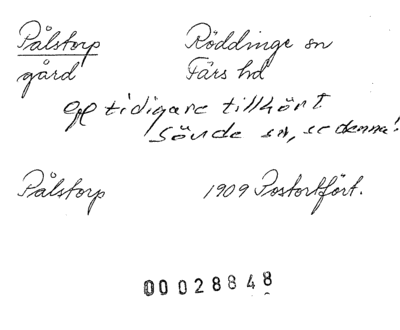 Pålstorp Röddinge sn
gård Färs hd
tidigare tillhört
Sövde sn, se denna!
Pålstorp 1909 Postortfört.
00028848